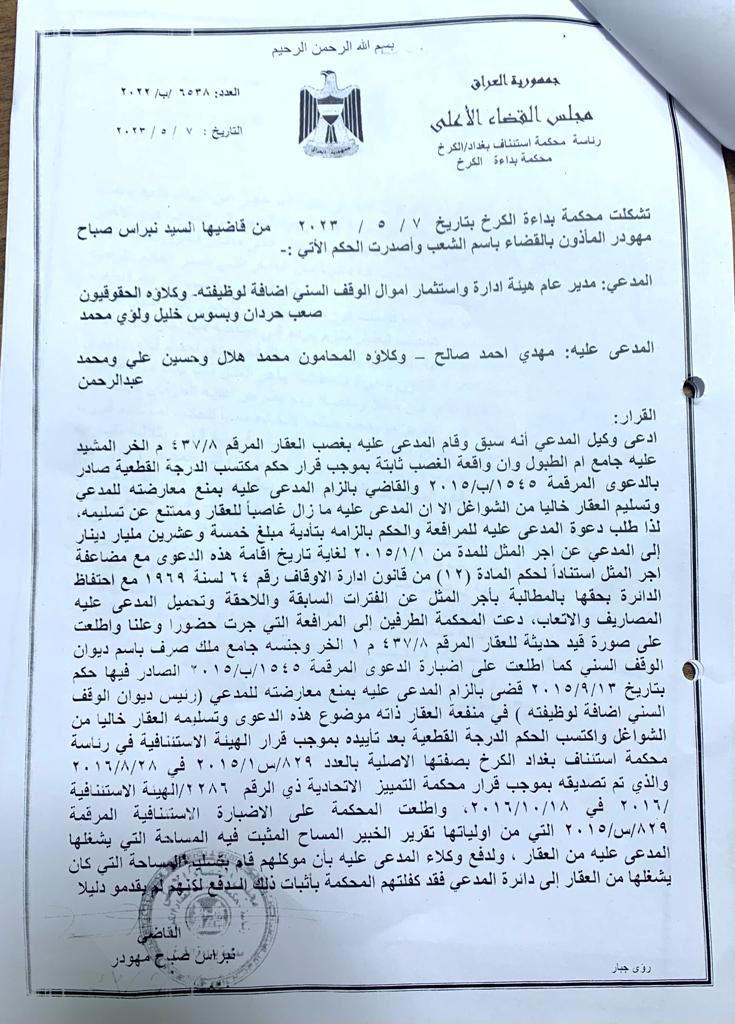 بسم الله الرحمن الرحيم
جمهورية العراق
مجلس القضاء الأعلى
رئاسة محكمة استئناف بغداد/الكرخ
محكمة بداءة الكرخ
العدد: ٦٥٣٨ /ب/ ٢٠٢٢
التاريخ : ٧ / ٥ / ٢٠٢٣
جمهورية العراق
تشكلت محكمة بداءة الكرخ بتاريخ ٧ / ٥ / ٢٠٢٣ من قاضيها السيد نبراس صباح
مهودر المأذون بالقضاء باسم الشعب وأصدرت الحكم الأتي :-
المدعي: مدير عام هيئة ادارة واستثمار اموال الوقف السني اضافة لوظيفته- وكلاؤه الحقوقيون
صعب حردان وبسوس خليل ولؤي محمد
المدعى عليه: مهدي احمد صالح – وكلاؤه المحامون محمد هلال وحسين علي ومحمد
عبدالرحمن
القرار:
ادعى وكيل المدعي أنه سبق وقام المدعى عليه بغصب العقار المرقم ٤٣٧/٨ م الخر المشيد
عليه جامع ام الطبول وان واقعة الغصب ثابتة بموجب قرار حكم مكتسب الدرجة القطعية صادر
بالدعوى المرقمة ١٥٤٥/ب/٢٠١٥ والقاضي بالزام المدعى عليه بمنع معارضته للمدعي
وتسليم العقار خاليا من الشواغل الا ان المدعى عليه ما زال غاصباً للعقار وممتنع عن تسليمه،
لذا طلب دعوة المدعى عليه للمرافعة والحكم بالزامه بتأدية مبلغ خمسة وعشرين مليار دينار
إلى المدعي عن اجر المثل للمدة من ٢٠١٥/١/١ لغاية تاريخ اقامة هذه الدعوى مع مضاعفة
اجر المثل استناداً لحكم المادة (١٢) من قانون ادارة الاوقاف رقم ٦٤ لسنة ١٩٦٩ مع احتفاظ
الدائرة بحقها بالمطالبة بأجر المثل عن الفترات السابقة واللاحقة وتحميل المدعى عليه
المصاريف والاتعاب، دعت المحكمة الطرفين إلى المرافعة التي جرت حضورا وعلنا واطلعت
على صورة قيد حديثة للعقار المرقم ٤٣٧/٨ م ١ الخر وجنسه جامع ملك صرف باسم ديوان
الوقف السني كما اطلعت على اضبارة الدعوى المرقمة ١٥٤٥/ب/٢٠١٥ الصادر فيها حكم
بتاريخ ٢٠١٥/٩/١٣ قضى بالزام المدعى عليه بمنع معارضته للمدعي (رئيس ديوان الوقف
السني اضافة لوظيفته ) في منفعة العقار ذاته موضوع هذه الدعوى وتسليمه العقار خاليا من
الشواغل واكتسب الحكم الدرجة القطعية بعد تأييده بموجب قرار الهيئة الاستئنافية في رئاسة
محكمة استئناف بغداد الكرخ بصفتها الاصلية بالعدد ٨٢٩/س٢٠١٥/١ في ٢٠١٦/٨/٢٨
والذي تم تصديقه بموجب قرار محكمة التمييز الاتحادية ذي الرقم ٢٢٨٦/الهيئة الاستئنافية
/٢٠١٦ في ٢٠١٦/١٠/١٨، واطلعت المحكمة على الاضبارة الاستئنافية المرقمة
٨٢٩/س/٢٠١٥ التي من اولياتها تقرير الخبير المساح المثبت فيه المساحة التي يشغلها
المدعى عليه من العقار ، ولدفع وكلاء المدعى عليه بأن موكلهم قام بتسليم المساحة التي كان
يشغلها من العقار إلى دائرة المدعي فقد كفلتهم المحكمة بأثبات ذلك الدفع لكنهم لم يقدمو دليلا
القاضي
نبراس صباح مهودر
رؤى جبار